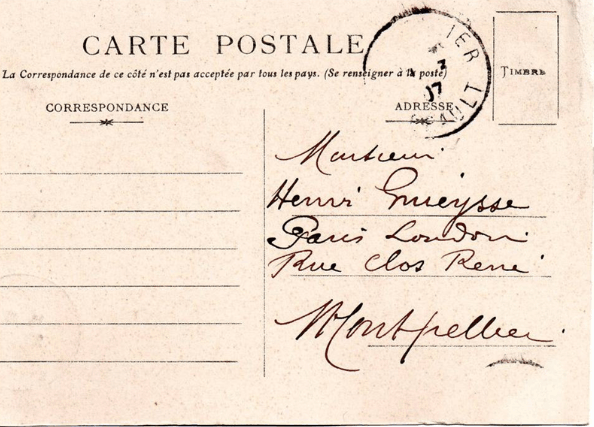 CARTE POSTALE
La Correspondance de ce côté n'est pas acceptée par tous les pays. (Se renseigner à la poste)
CORRESPONDANCE
ADRESSE
TIMBRE
IER
3
07
RAULT
Monsieur
Henri Gueysse
Paris London
Rue Clos René
Montpellier